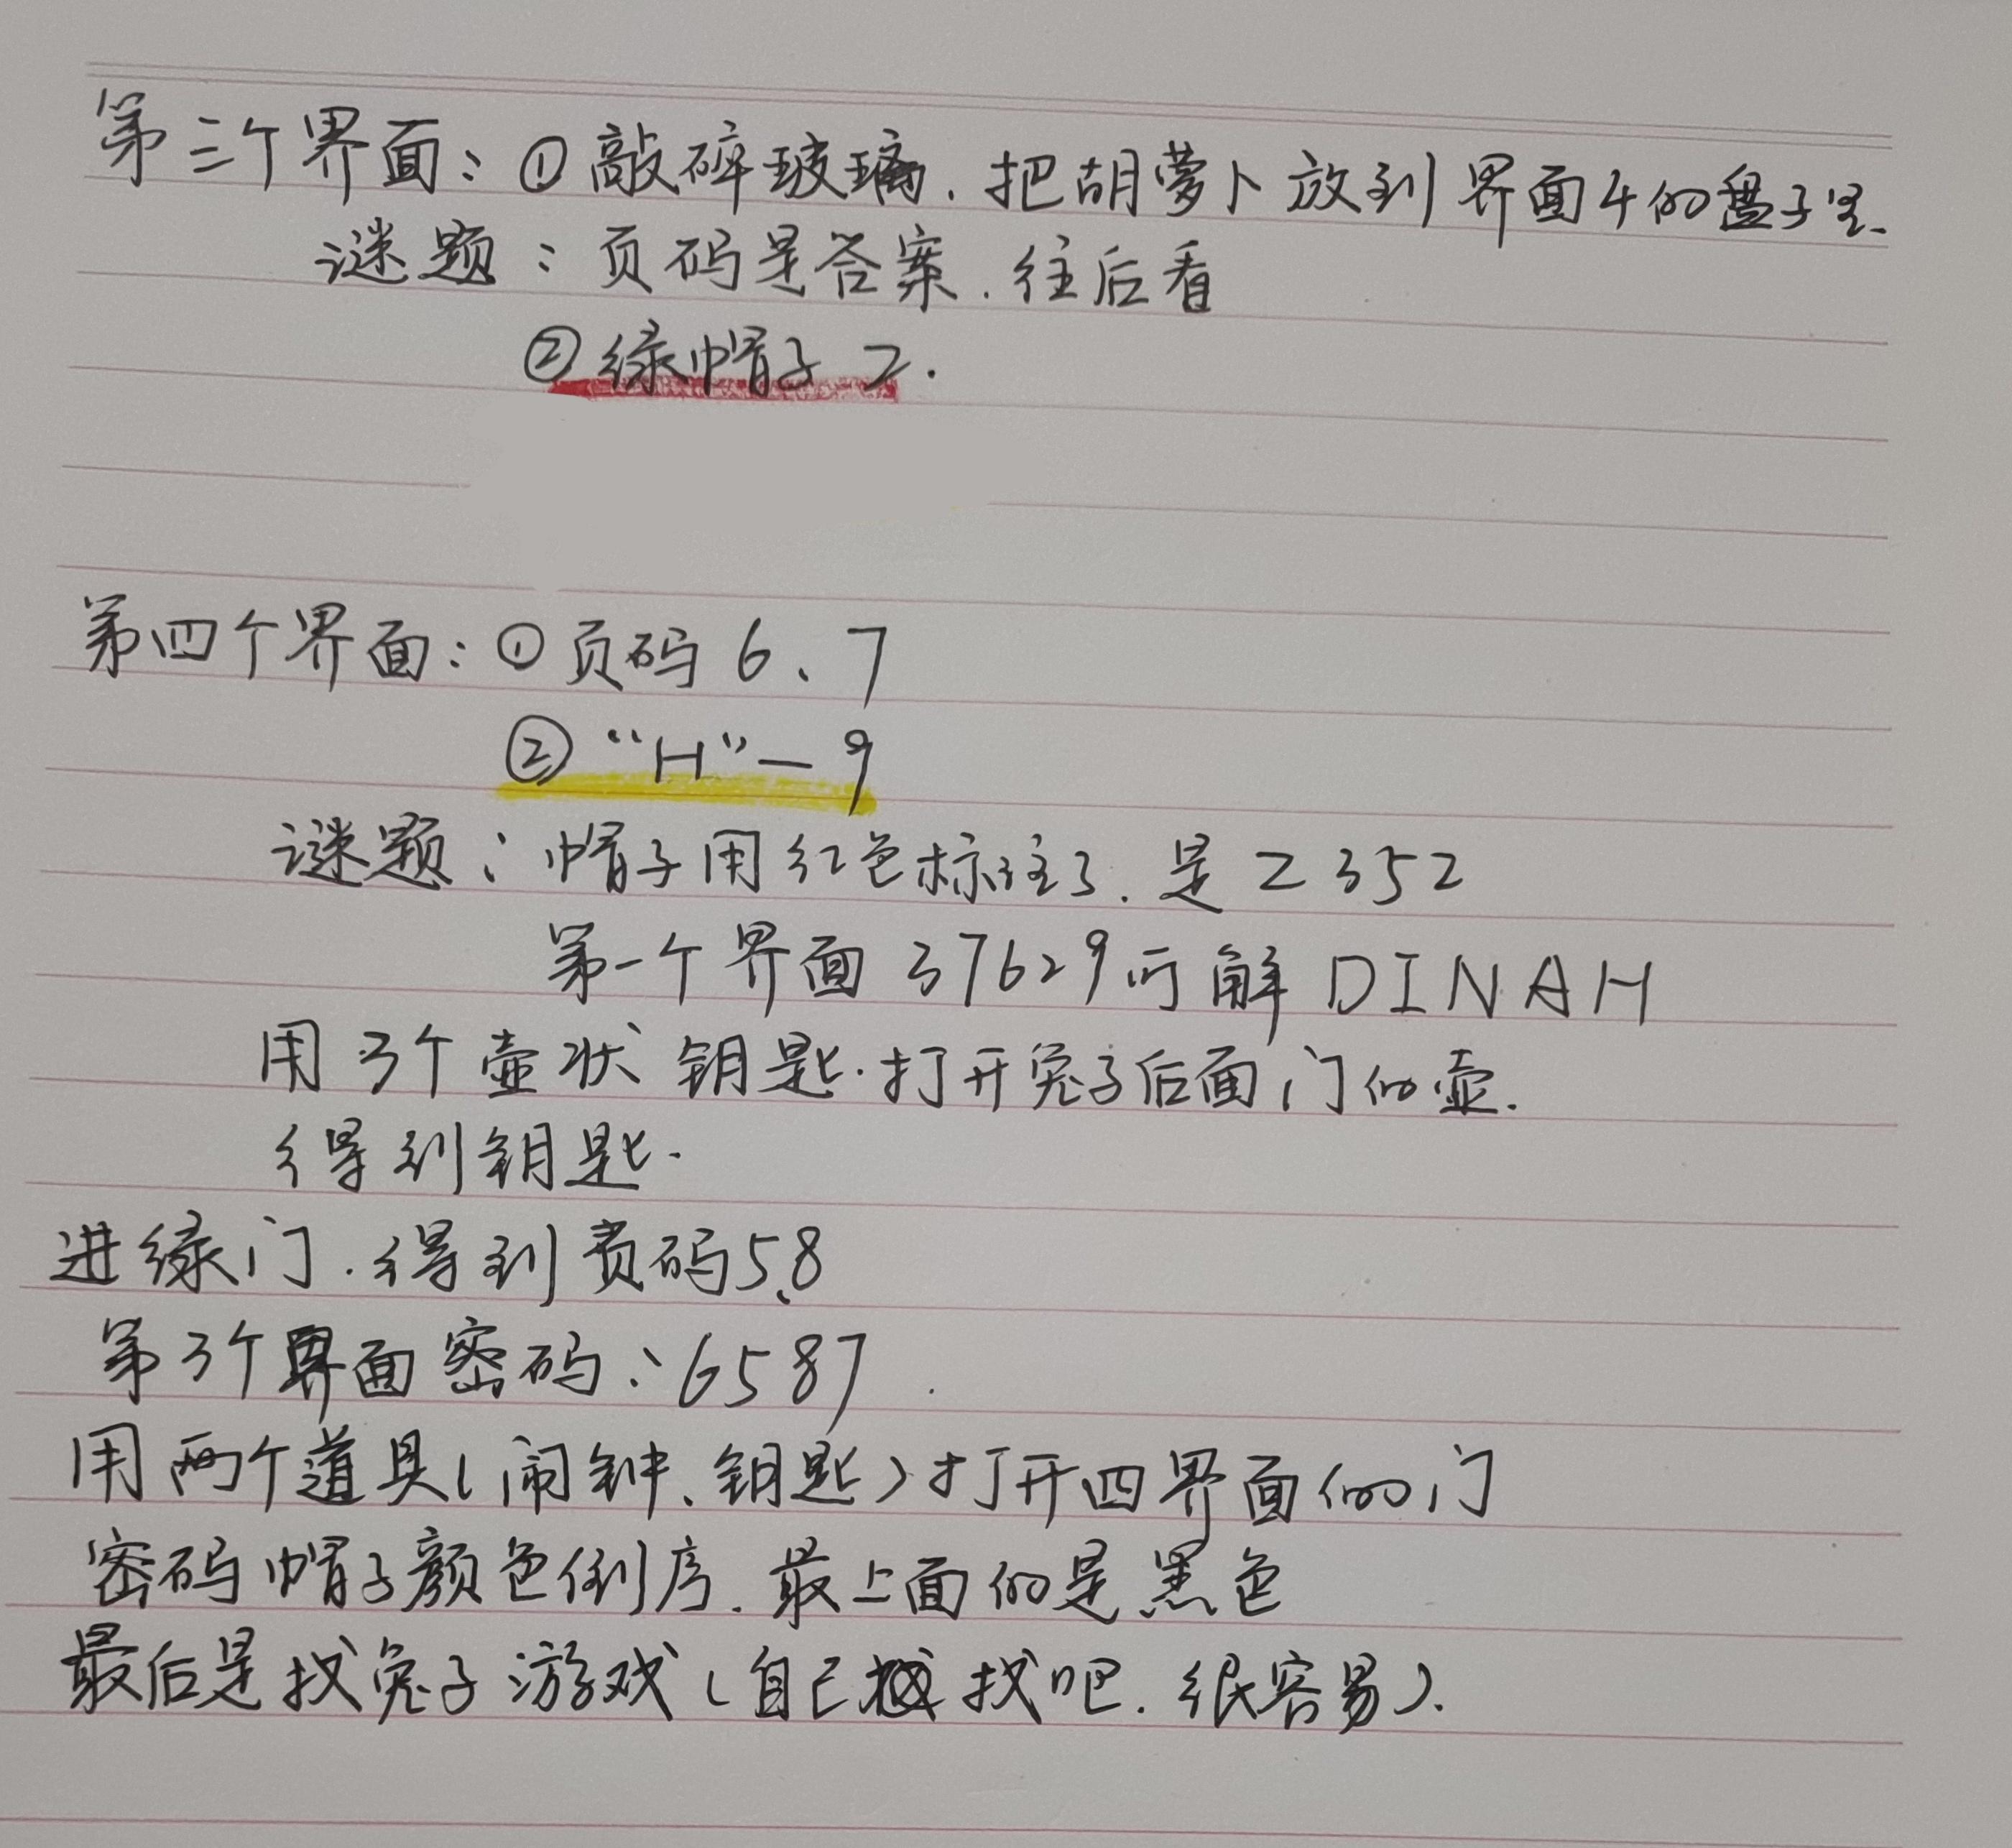 第三个界面：①敲碎玻璃．把胡萝卜放到界面4的盘子里．
谜题：页码是答案．往后看
②绿帽子2．
第四个界面：①页码6、7
②“H”—9
谜题：帽子用红色标注了．是2352
第一个界面37629可解DINAH
用3个壶状钥匙．打开兔子后面门的壶．
得到钥匙．
进绿门．得到页码5、8
第3个界面密码：6587
用两个道具（闹钟、钥匙）打开四界面的门
密码帽子颜色倒序．最上面的是黑色
最后是找兔子游戏（自己找吧．很容易）．